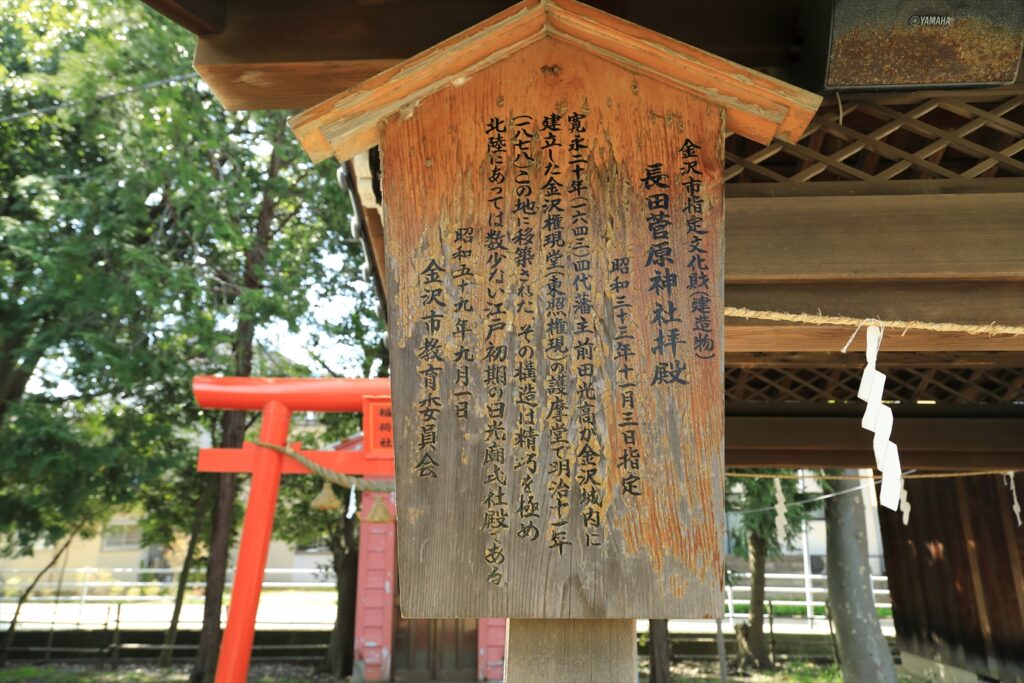 金沢市指定文化財(建造物)
長田菅原神社拝殿
昭和三十三年十一月三日指定
寛永二十年(一六四三)四代藩主前田光高が金沢城内に
建立した金沢権現堂(東照権現)の護摩堂で明治十一年
(一八七八)この地に移築された その構造は精巧を極め
北陸にあっては数少ない江戸初期の日光廟式社殿である。
昭和五十九年九月一日
金沢市教育委員会
稲荷社
YAMAHA